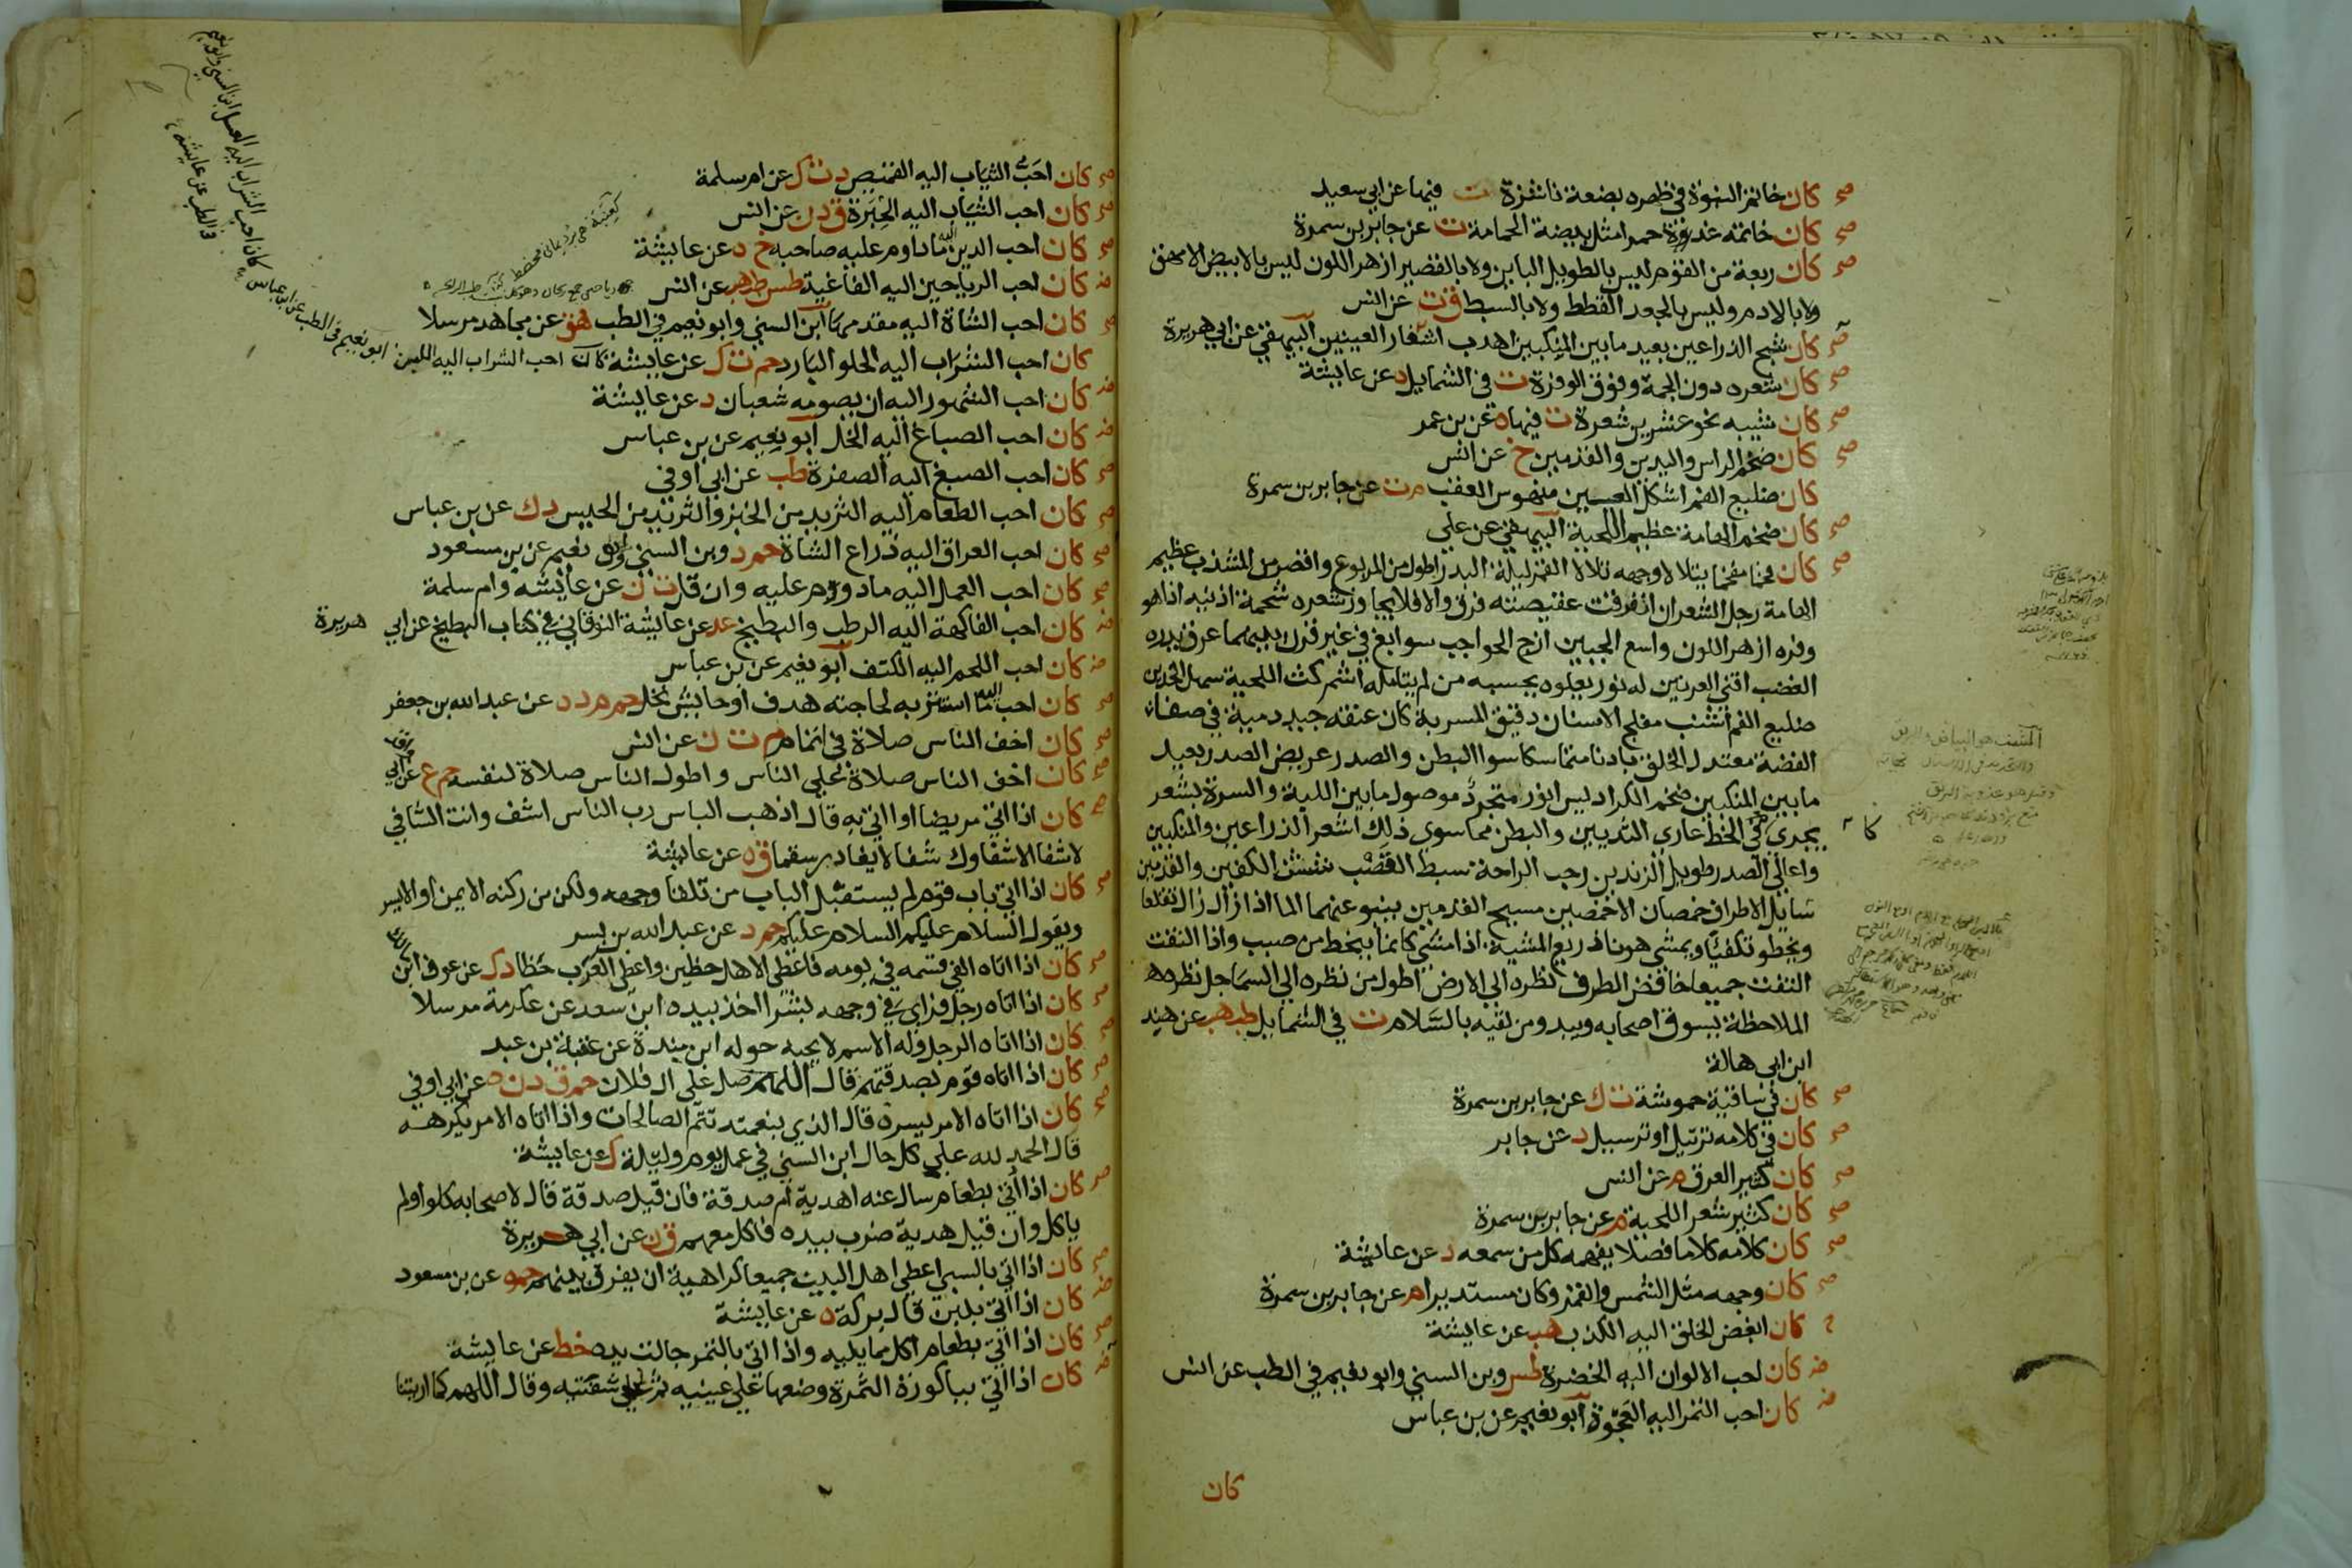 كان خاتم النبوة في ظهره بضعة ناشزة ت فيها عن ابي سعيد
كان خاتمه غدة حمرا مثل بيضة الحمامة ت عن جابر بن سمرة
كان ربعة من القوم ليس بالطويل الباين ولا بالقصير ازهر اللون ليس بالابيض الامهق
ولا بالادم وليس بالجعد القطط ولا بالسبط ق ت عن انس
كان شبح الذراعين بعيد ما بين المنكبين اهدب اشفار العينين البيهقي عن ابي هريرة
كان شعره دون الجمة وفوق الوفرة ت في الشمايل د عن عايشة
كان شيبه نحو عشرين شعرة ت فيها ه عن بن عمر
كان ضخم الراس واليدين والقدمين خ عن انس
كان ضليع الفم اشكل العينين منهوس العقب م ت عن جابر بن سمرة
كان ضخم الهامة عظيم اللحية البيهقي عن علي
كان فخما مفخما يتلالا وجهه تلالا القمر ليلة البدر اطول من المربوع واقصر من المشذب عظيم
الهامة رجل الشعر ان انفرقت عقيصته فرق والا فلا يجاوز شعره شحمة اذنيه اذا هو
وفره ازهر اللون واسع الجبين ازج الحواجب سوابغ في غير قرن بينهما عرق يدره
الغضب اقنى العرنين له نور يعلوه يحسبه من لم يتامله اشم كث اللحية سهل الخدين
ضليع الفم اشنب مفلج الاسنان دقيق المسربة كان عنقه جيد دمية في صفاء
الفضة معتدل الخلق بادنا متماسكا سوا البطن والصدر عريض الصدر بعيد
ما بين المنكبين ضخم الكراديس انور متجرد موصول ما بين اللبة والسرة بشعر
يجري كالخط عاري الثديين والبطن مما سوي ذلك اشعر الذراعين والمنكبين
واعالي الصدر طويل الزندين رحب الراحة سبط القصب شثن الكفين والقدمين
سايل الاطراف خمصان الاخمصين مسيح القدمين ينبو عنهما الما اذا زال زال تقلعا
ويخطو تكفيا ويمشي هونا ذريع المشية اذا مشي كانما ينحط من صبب واذا التفت
التفت جميعا خافض الطرف نظره الي الارض اطول من نظره الي السما جل نظره
الملاحظة يسوق اصحابه ويبدر من لقيه بالسلام ت في الشمايل طب هب عن هند
ابن ابي هالة
كان في ساقيه حموشة ت ك عن جابر بن سمرة
كان في كلامه ترتيل او ترسيل د عن جابر
كان كثير العرق م عن انس
كان كثير شعر اللحية م عن جابر بن سمرة
كان كلامه كلاما فصلا يفهمه كل من سمعه د عن عايشة
كان وجهه مثل الشمس والقمر وكان مستديرا م عن جابر بن سمرة
كان ابغض الخلق اليه الكذب هب عن عايشة
كان احب الالوان اليه الخضرة طس وبن السني وابو نعيم في الطب عن انس
كان احب التمر اليه العجوة ابو نعيم عن بن عباس
كان
كان احب الثياب اليه القميص د ت ك عن ام سلمة
كان احب الثياب اليه الحبرة ق د ن عن انس
كان احب الدين اليه ما داوم عليه صاحبه خ د عن عايشة
كان احب الرياحين اليه الفاغية طس طب هب عن انس
كان احب الشاة اليه مقدمها ابن السني وابو نعيم في الطب هق عن مجاهد مرسلا
كان احب الشراب اليه الحلو البارد حم ت ك عن عايشة كان احب الشراب اليه اللبن ابو نعيم في الطب عن ابن عباس
كان احب الشراب اليه العسل ابن السني وابو نعيم
في الطب عن عايشة
كان احب الشهور اليه ان يصومه شعبان د عن عايشة
كان احب الصباغ اليه الخل ابو نعيم عن بن عباس
كان احب الصبغ اليه الصفرة طب عن ابن اوفي
كان احب الطعام اليه الثريد من الخبز والثريد من الحيس د ك عن بن عباس
كان احب العراق اليه ذراع الشاة حم د وبن السني وابو نعيم عن بن مسعود
كان احب العمل اليه ما دووم عليه وان قل ت ن عن عايشه وام سلمة
كان احب الفاكهة اليه الرطب والبطيخ عد عن عايشة النوقاني في كتاب البطيخ عن ابي هريرة
كان احب اللحم اليه الكتف ابو نعيم عن بن عباس
كان احب ما استتر به اليه لحاجته هدف او حايش نخل حم م د ه عن عبد الله بن جعفر
كان اخف الناس صلاة في اتمام م ت ن عن انس
كان اخف الناس صلاة علي الناس واطول الناس صلاة لنفسه حم ع عن ابي واقد
كان اذا اتي مريضا او اتي به قال اذهب الباس رب الناس اشف وانت الشافي
لا شفا الا شفاوك شفا لا يغادر سقما ق ه عن عايشة
كان اذا اتي باب قوم لم يستقبل الباب من تلقا وجهه ولكن من ركنه الايمن او الايسر
ويقول السلام عليكم السلام عليكم حم د عن عبد الله بن بسر
كان اذا اتاه الفي قسمه في يومه فاعطى الاهل حظين واعطى العزب حظا د ك عن عوف ابن مالك
كان اذا اتاه رجل فراي في وجهه بشرا اخذ بيده ابن سعد عن عكرمة مرسلا
كان اذا اتاه الرجل وله الاسم لا يحبه حوله ابن مندة عن عتبة بن عبد
كان اذا اتاه قوم بصدقتهم قال اللهم صل على ال فلان حم ق د ن ه عن ابن ابي اوفي
كان اذا اتاه الامر يسره قال الذي بنعمته تتم الصالحات واذا اتاه الامر يكرهه
قال الحمد لله علي كل حال ابن السني في عمل يوم وليلة ك عن عايشة
كان اذا اتي بطعام سال عنه اهدية ام صدقة فان قيل صدقة قال لاصحابه كلوا ولم
ياكل وان قيل هدية ضرب بيده فاكل معهم ق ن عن ابي هريرة
كان اذا اتي بالسبي اعطي اهل البيت جميعا كراهية ان يفرق بينهم حم ه عن بن مسعود
كان اذا اتي بلبن قال بركة ه عن عايشة
كان اذا اتي بطعام اكل مما يليه واذا اتي بالتمر جالت يده خط عن عايشة
كان اذا اتي بباكورة الثمرة وضعها علي عينيه ثم علي شفتيه وقال اللهم كما اريتنا